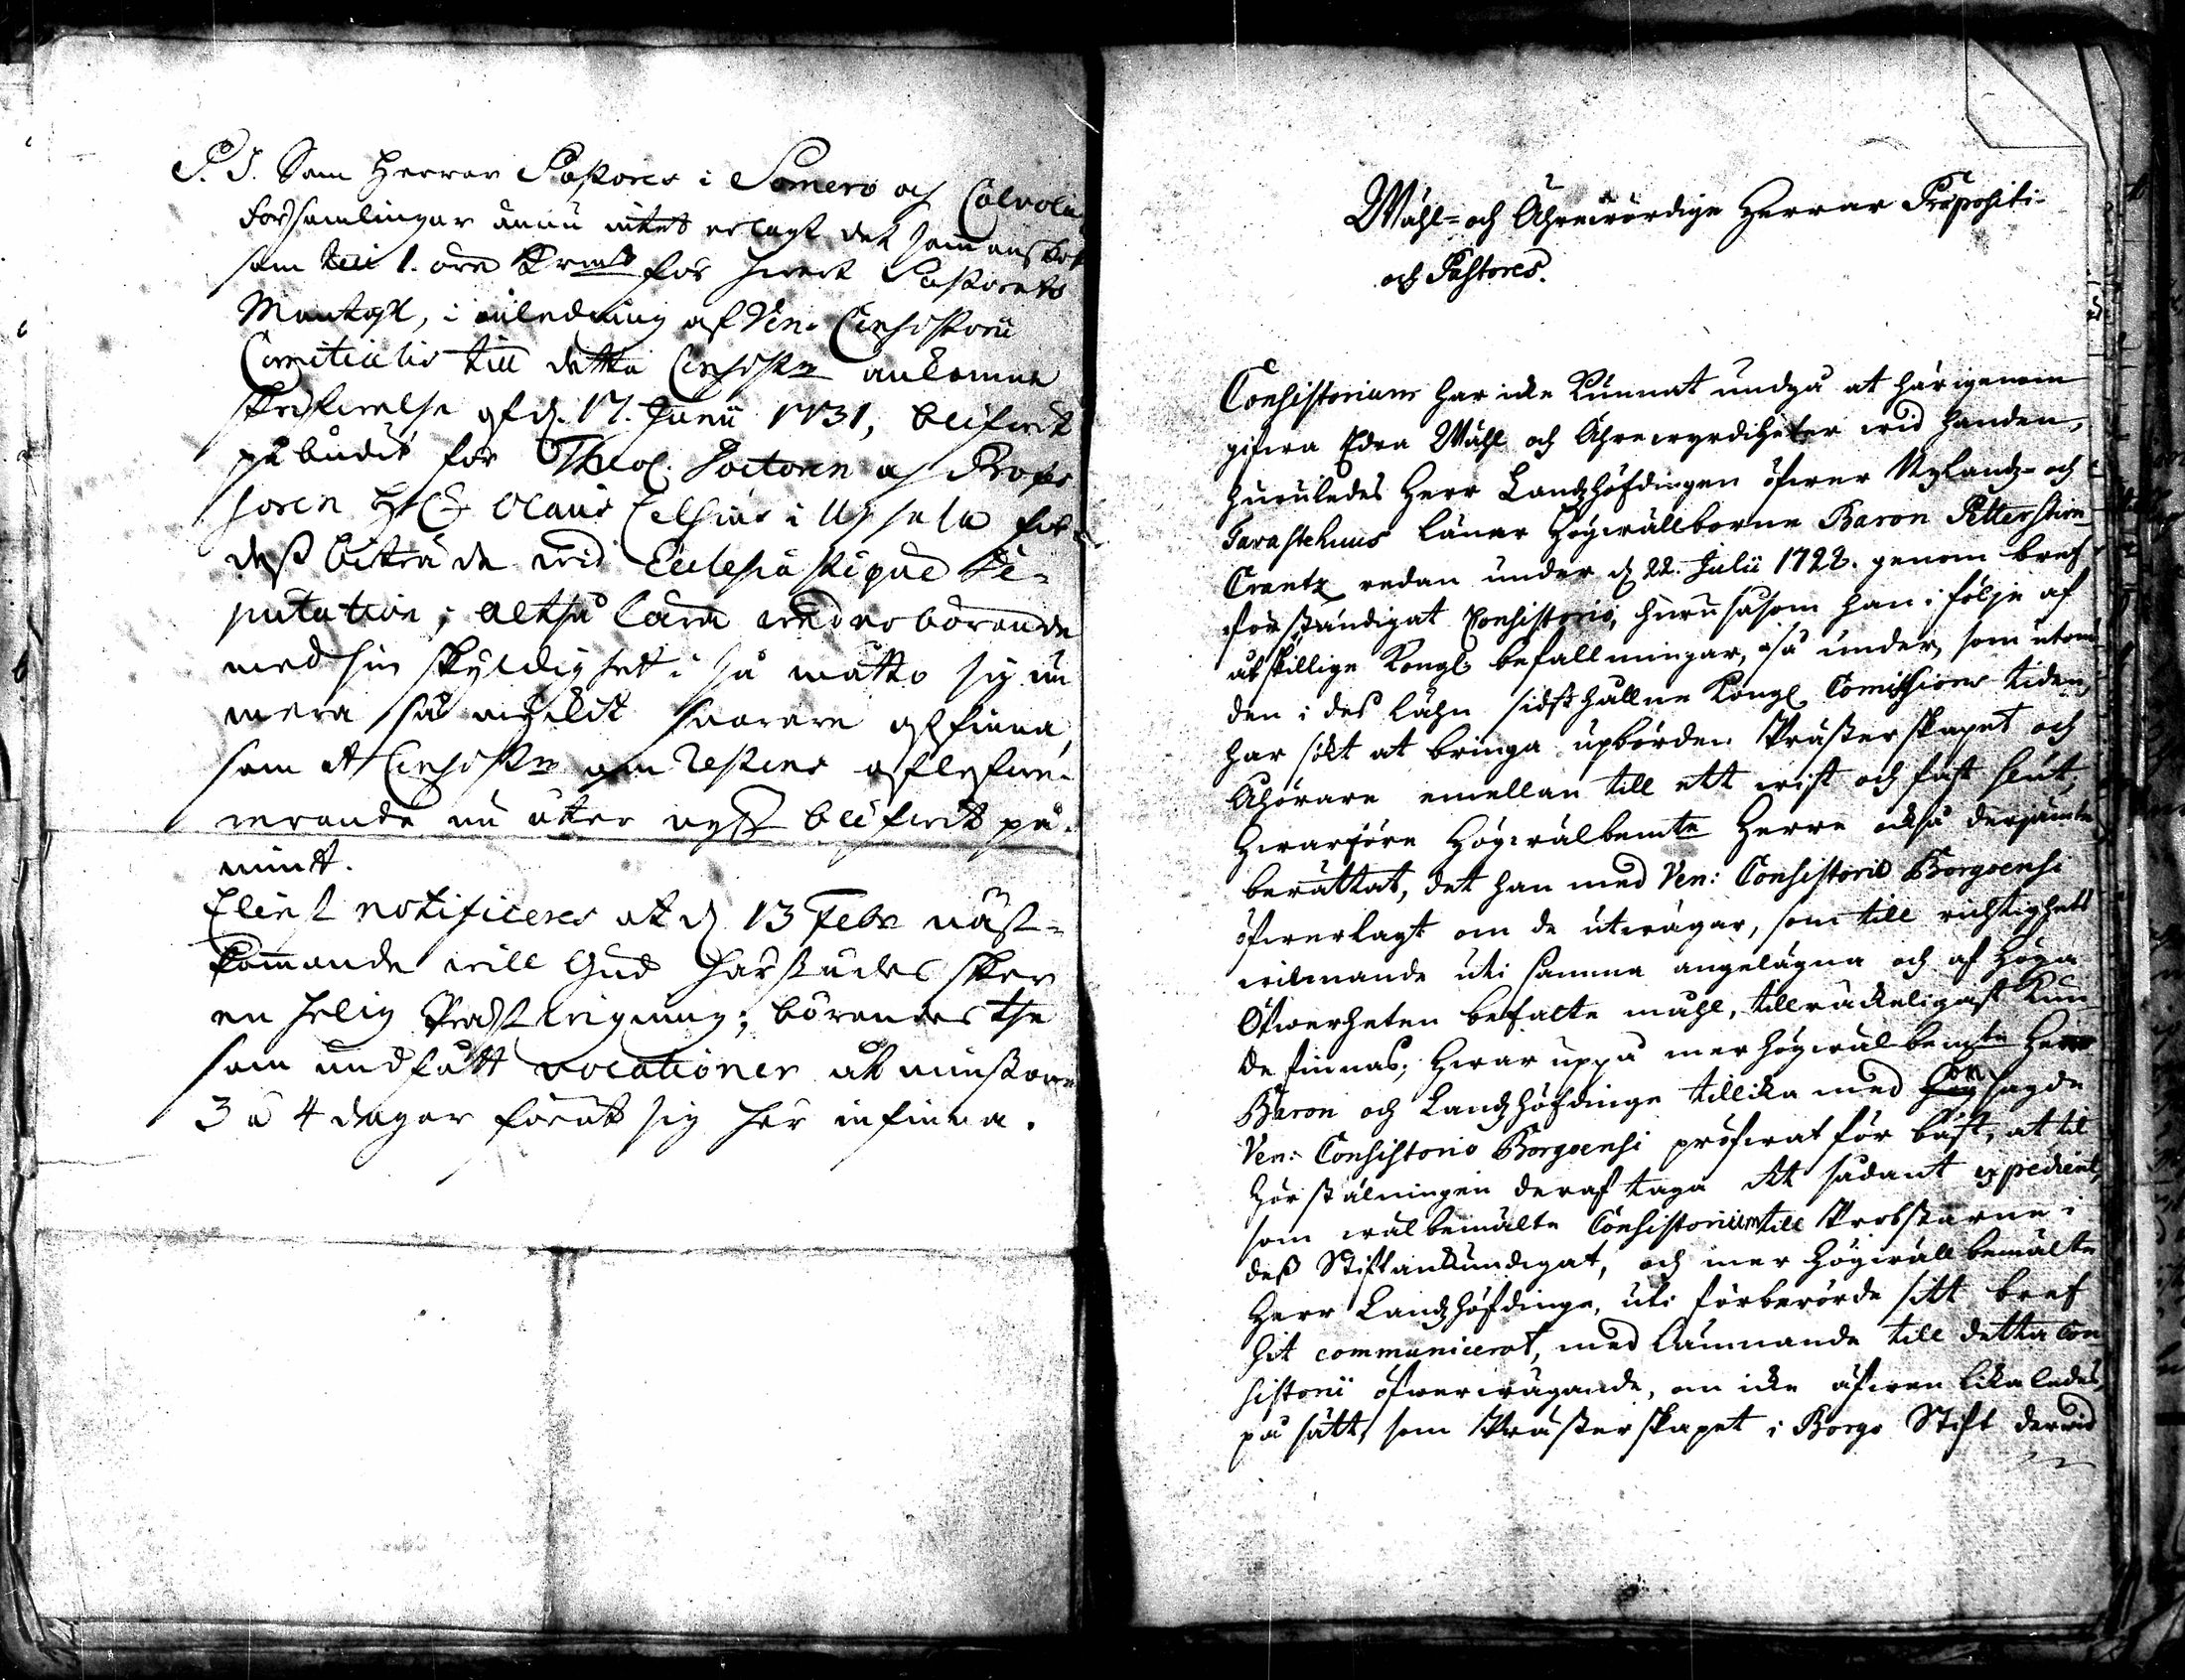 P.S. Som Herrar Pastores i Somero och Calvola
församlingar ännu intet erlagt det sammanskott
som till 1. öre Krmt för hwart Pastorats
Mantahl, i anledning af Ven. Consistorii
Comitialis till detta Consistm ankomne
skrifwelse af d. 17. Junii 1731, blifwit
påbudit för Theol. Doctoren och Profes
soren H Olaus Celsius i Upsala för
dess biträde wid Ecclesiastique De-
putation; altså lära wederbörande
med sin skyldighet i så måtto sig nu
mera så mycket snarare affinna,
som at Consistm om restens aflefwe-
rerande nu åter nyss blifwit på-
mint.
Elliest notificeres at d. 13 Febr näst-
kommande will Gud härstädes sker
en helig Prestwigning; börandes the
som undfått vocationer åtminstone
3 à 4 dagar förut sig här infinna.
Wähl- och Ährewördige Herrar Præpositi
och Pastores.
Consistorium har icke kunnat undgå at härigenom
gifwa Edra Wähl och Ährewyrdigheter wid handen,
huruledes Herr Landzhöfdingen öfwer Nylandz- och
Tavastehuus länar Högwällborne Baron Petter Stiern
Crantz redan under d 22. Julii 1728. genom bref
förständigat Consistorio, huru såsom han i följe af
åtskillige Kongl. befallningar, så under, som utom
den i des Lähn sidst hallne Kongl. Comissions tiden,
har sökt at bringa upbörden Prästerskapet och
Åhörare emellan till ett wist och fast slut;
Hwarföre Högwälbemte Herre också derjämte
berättat, det han med Ven: Consistorio Borgoensi
öfwerlagt om de utwägar, som till richtighets
winnande uti samma angelägna och af Höga
Öfwerheten befalte mähl, tillräckeligast kun
de finnas; Hwar uppå mer högwälbemte Herr
Baron och Landzhöfdinge tillika med sagde
Ven: Consistorio Borgoensi pröfwat för bäst, at til
hörställningen deraf taga ett sådant expedient,
som wälbemälte Consistorium till Probstarne i
dess Stift ankundigat, och mer Högwällbemälte
Herr Landzhöfdinge, uti förberörde sitt bref
hit communicerat, med lämnande till detta Con
sistorii öfwerwägande, om icke äfwen likaledes,
på sätt, som Prästerskapet i Borgo Stift derwid